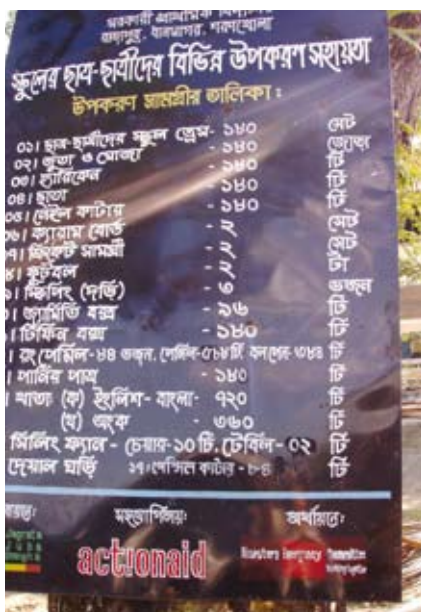 সরকারী প্রাথমিক
স্কুলের ছাত্র-ছাত্রীদের বিভিন্ন উপকরণ সহায়তা
উপকরণ সামগ্রীর তালিকা :
০১। ছাত্র-ছাত্রীদের স্কুল ড্রেস- ১৮০ সেট
০২। জুতা ও মোজা - ১৮০ জোড়া
০৩। হ্যারিকেন - ১৮০ টি
০৪। ছাতা - ১৮০ টি
০৫। নেইল কাটার - ১৮০ টি
০৬। ক্যারাম বোর্ড - ২ সেট
৭। ক্রিকেট সামগ্রী - ২ সেট
৮। ফুটবল - ২ টা
৯। স্কিপিং (দড়ি) - ৬ ডজন
। জ্যামিতি বক্স - ১৬ টি
। টিফিন বক্স - ১৮০ টি
। রং পেন্সিল-৮৪ ডজন, পেন্সিল-৩৮৪টি কলমের- ৩৮৪ টি
। পানির পাত্র - ১৮০ টি
। খাতা (ক) ইংলিশ- বাংলা- ৭২০ টি
(খ) অংক - ৩৬০ টি
সিলিং ফ্যান - চেয়ার- ১০টি, টেবিল- ০২ টি
দেয়াল ঘড়ি ১৭।পেন্সিল কাটার - ৮৪ টি
সহযোগিতায়: অর্থায়নে:
actionaid Disasters Emergency Committee